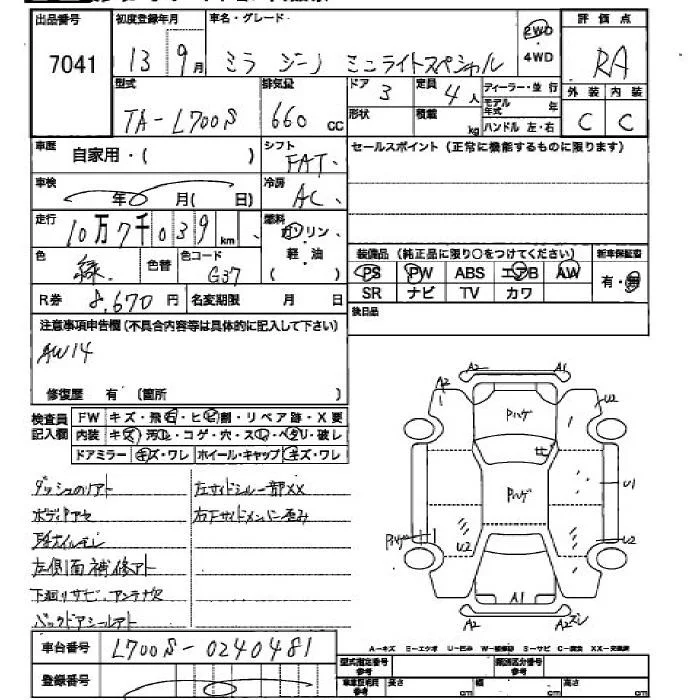 出品番号 初度登録年月 車名・グレード 評価点
7041 13 9月 ミラ ジーノ ミニライトスペシャル 2WD ・ 4WD RA
型式 排気量 ドア 定員 ディーラー・並行 外装 内装
TA-L700S 660 cc 3 4人 モデル年式 年 C C
形状 積載 kg ハンドル 左・右
車歴 自家用・( ) シフト FAT セールスポイント (正常に機能するものに限ります)
車検 年 月( 日) 冷房 AC
走行 10万7千039 km 燃料 ガソリン
軽・油
( )
色 緑 色替 色コード G37
装備品 (純正品に限り○をつけてください) 新車保証書
PS PW ABS エアB AW 有・無
SR ナビ TV カワ
R券 8,670円 名変期限 月 日
後日品
注意事項申告欄(不具合内容等は具体的に記入して下さい)
AW14
修復歴 有 (箇所 )
検査員記入欄 FW キズ・飛石・ヒビ割・リペア跡・X要
内装 キズ・汚れ・コゲ・穴・スレ・ヘタリ・破レ
ドアミラー キズ・ワレ ホイール・キャップ キズ・ワレ
左サイドシル一部XX
ボディアセ 右下サイドメンバー歪み
左側面補修アト
下廻りサビ、アンテナ欠
バックドアシールアト
車台番号 L700S-0240481
登録番号
A2 A1
A2 U2
Pハゲ
ヒ
Pハゲ U1
U2
A1
A2 A2
A-キズ E-エクボ U-凹み W-補修跡 S-サビ C-腐食 XX-交換済
型式指定番号 類別区分番号
長さ cm 幅 cm 高さ cm